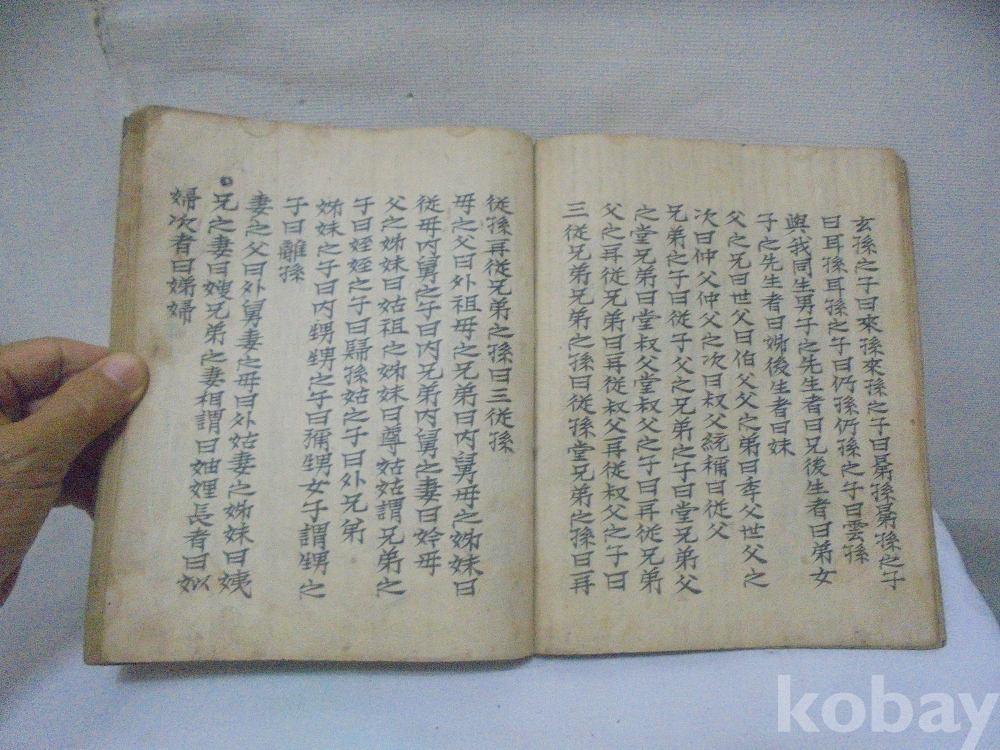 玄孫之子曰來孫來孫之子曰晜孫晜孫之子
曰耳孫耳孫之子曰仍孫仍孫之子曰雲孫
與我同生男子之先生者曰兄後生者曰弟女
子之先生者曰姊後生者曰妹
父之兄曰世父曰伯父父之弟曰季父世父之
次曰仲父仲父之次曰叔父統稱曰從父
兄弟之子曰從子父之兄弟之子曰堂兄弟父
之堂兄弟曰堂叔父堂叔父之子曰再從兄弟
父之再從兄弟曰再從叔父再從叔父之子曰
三從兄弟兄弟之孫曰從孫堂兄弟之孫曰再
從孫再從兄弟之孫曰三從孫
母之父曰外祖母之兄弟曰內舅母之姊妹曰
從母內舅之子曰內兄弟內舅之妻曰妗母
父之姊妹曰姑祖之姊妹曰尊姑姑謂兄弟之
子曰姪姪之子曰歸孫姑之子曰外兄弟
姊妹之子曰內甥甥之子曰彌甥女子謂甥之
子曰離孫
妻之父曰外舅妻之母曰外姑妻之姊妹曰姨
兄之妻曰嫂兄弟之妻相謂曰妯娌長者曰姒
婦次者曰娣婦
kobay